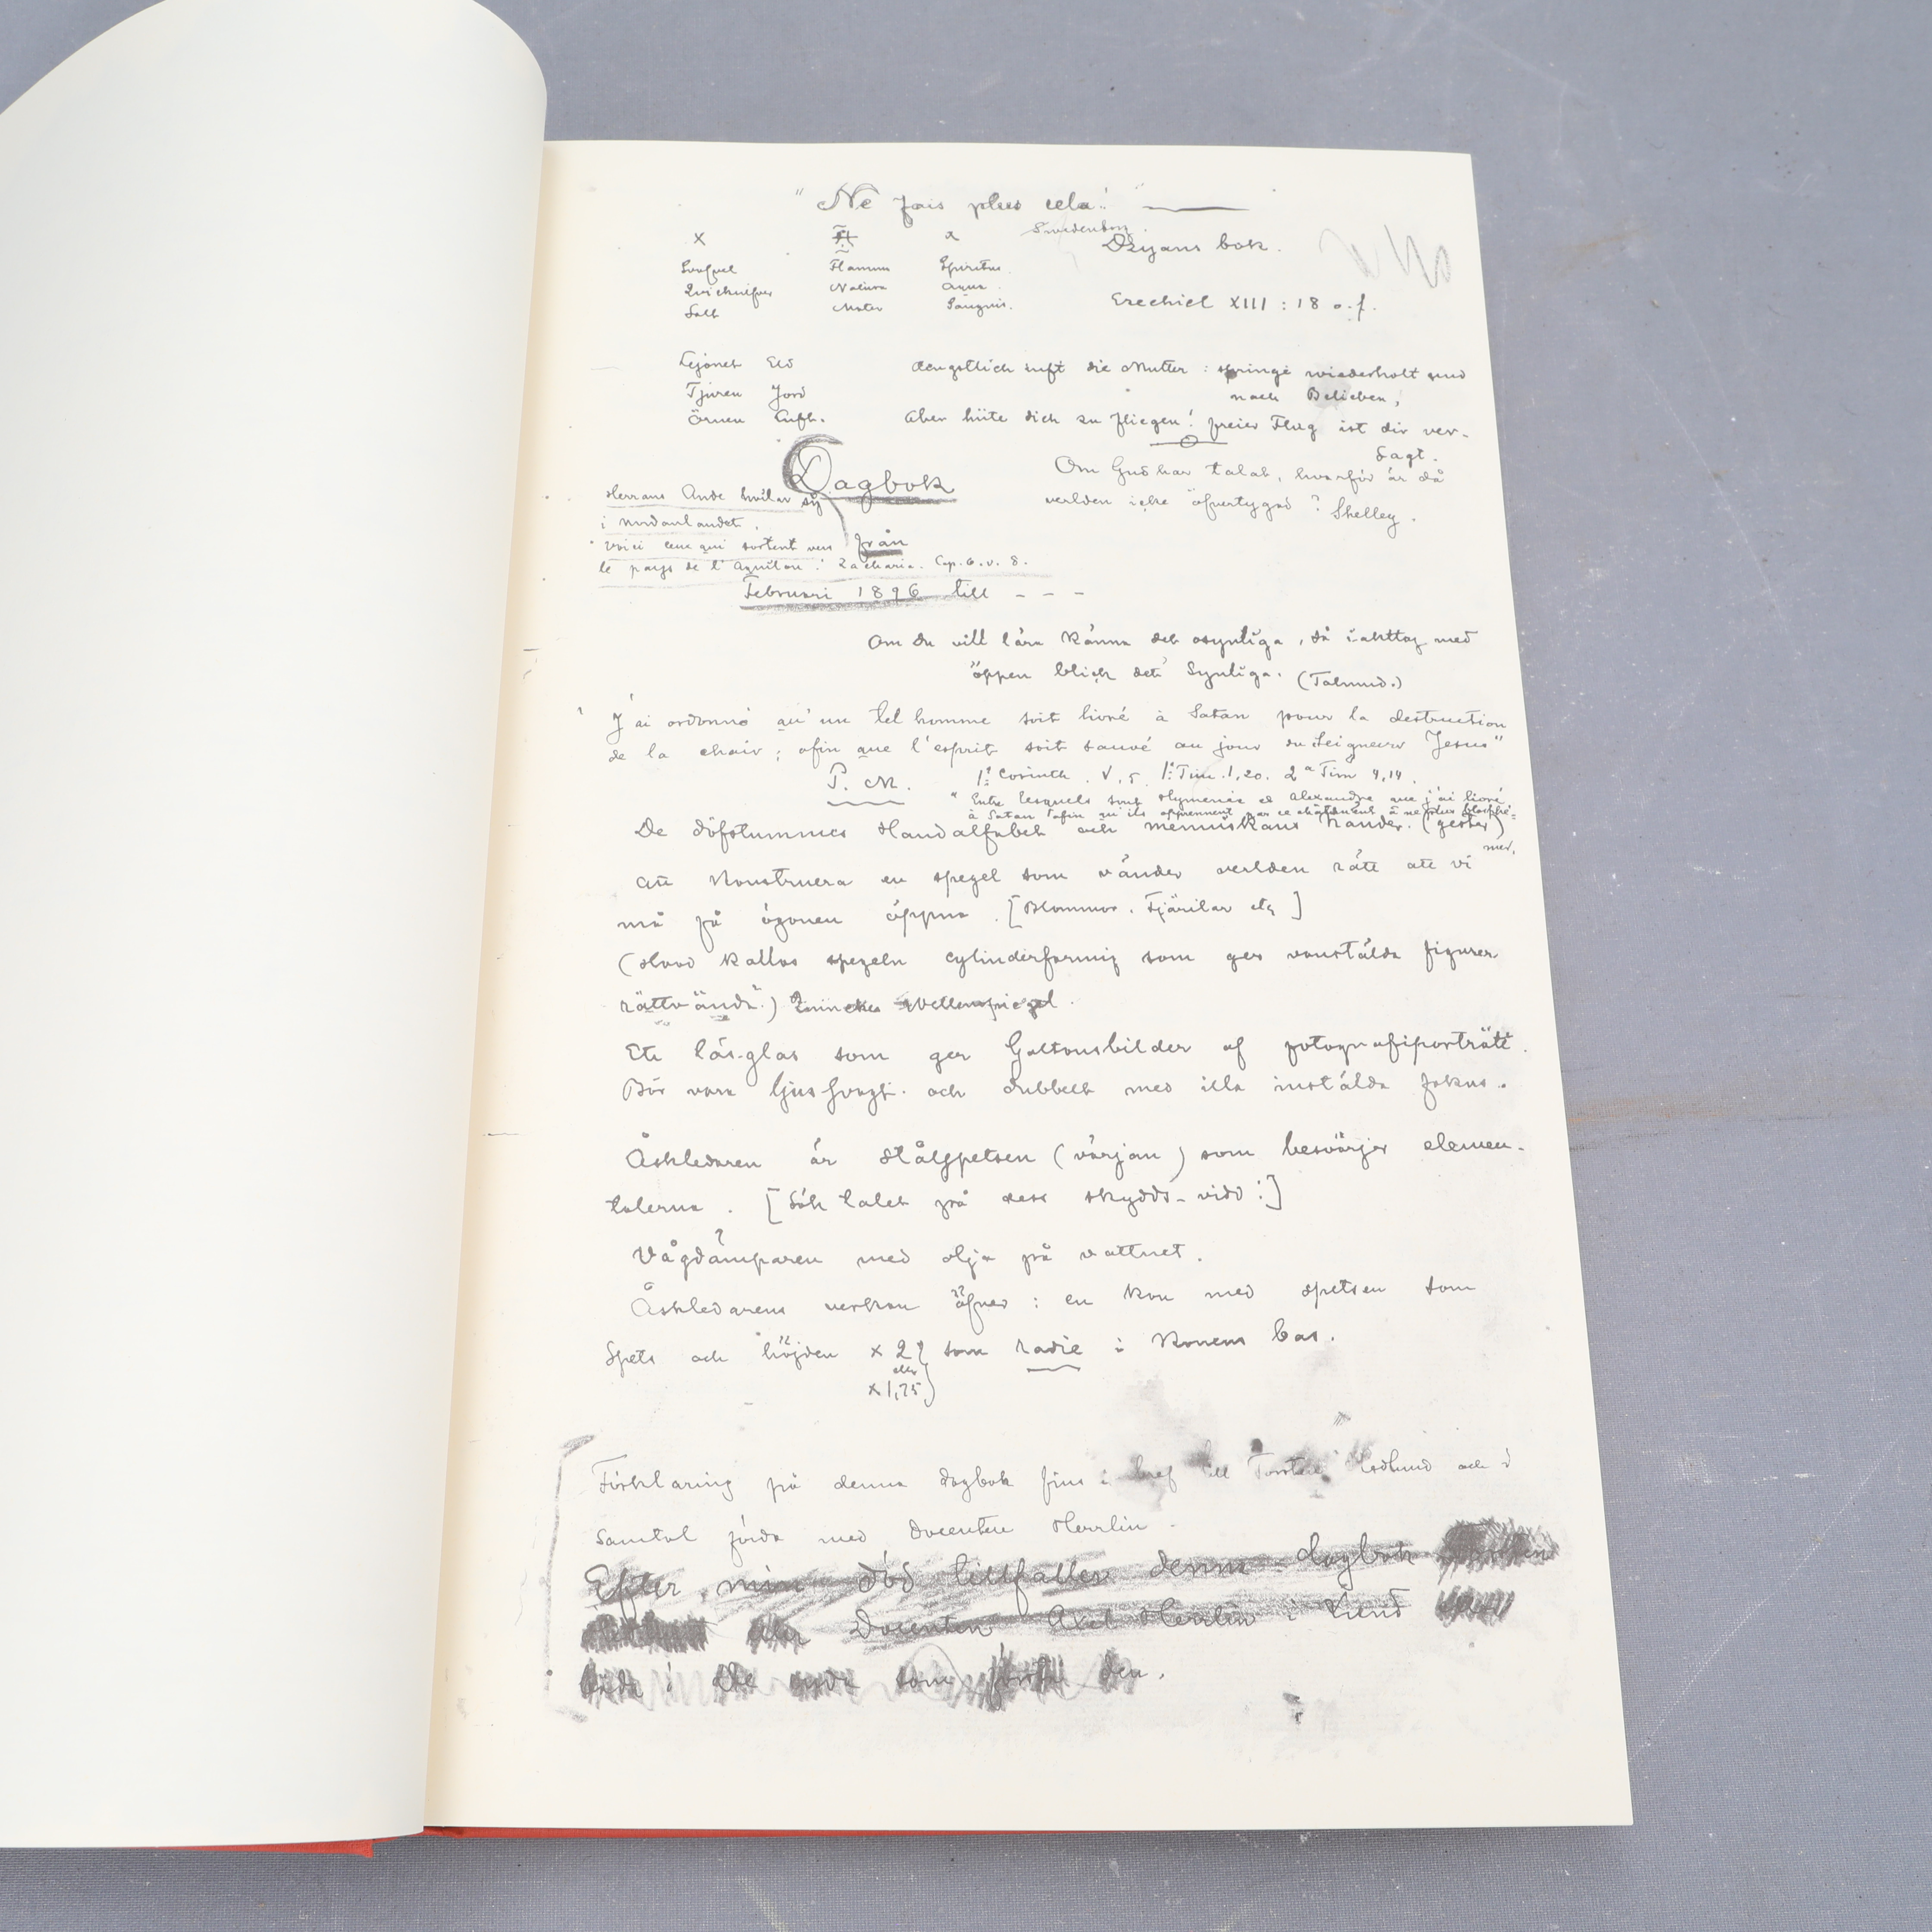 "Ne fais plus cela!"
Swedenborg.
Dzyans bok.
X
Svafvel Flamma Spiritus.
Qvicksilfver Natura Aqua.
Salt Mater Sanguis.
Ezechiel XIII : 18 o. f.
Lejonet Eld
Tjuren Jord
Örnen Luft.
Aengstlich ruft die Mutter : springe wiederholt und
nach Belieben,
Aber hüte dich zu fliegen! freier Flug ist dir ver-
sagt.
Dagbok
Om Gud har talat, hvarför är då
verlden icke öfvertygad? Shelley.
Herrans Ande hvilar sig
i Nordanlandet.
från
Voici ceux qui sortent vers
le pays de l'Aquilon. Zacharia. Cap. 6. v. 8.
Februari 1896 till - - -
Om du vill lära känna det osynliga, så iakttag med
öppen blick det Synliga. (Talmud.)
"J'ai ordonné qu'un tel homme soit livré à Satan pour la destruction
de la chair; afin que l'esprit soit sauvé au jour du Seigneur Jesus"
P. M.
1º Corinth. V, 5. 1º Tim. 1, 20. 2ª Tim 4, 14.
"Entre lesquels sont Hymenée et Alexandre que j'ai livré
à Satan afin qu'ils apprennent par ce châtiment à ne plus blasphé-
mer.
De döfstummes Handalfabet och menniskans händer. (gester)
Att Konstruera en spegel som vänder verlden rätt att vi
må få ögonen öppna. [Blommor. Fjärilar etc]
(Hvad kallas spegeln cylinderformig som ger vanstälda figurer
rättvända.)
Ett läs-glas som ger Galtonsbilder af fotografiporträtt.
Bör vara ljussvagt. och dubbelt med illa instälda fokus.
Åskledaren är stålspetsen (värjan) som besvärjer elemen-
talerna. [Sök talet på dess skydds-vidd:]
Vågdämparen med olja på vattnet.
Åskledarens verkan öfver : en kon med spetsen som
Spets och höjden x 2 } som radie i konens bas.
eller
x 1,75
Förklaring på denna dagbok fins i bref till Torsten Hedlund och i
samtal förda med docenten Herrlin.
Efter min död tillfaller denna dagbok Torsten
Hedlund eller Docenten Axel Herrlin i Lund
båda i de enda som förstå den.